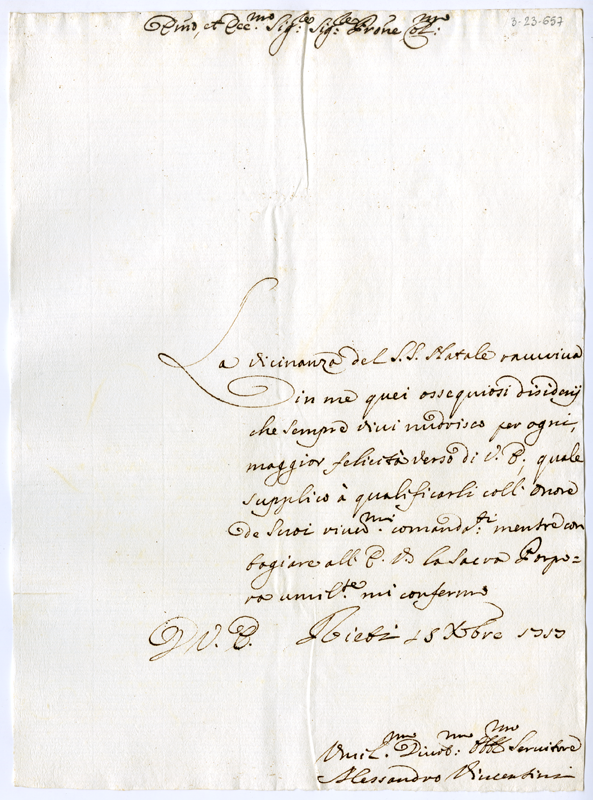 Emo, et Rec.mo Sig.re Sig.re Prone Col.mo
3-23-657
La vicinanza del S.S. Natale ravviva
in me quei ossequiosi disiderij
che sempre vivi nudrisco per ogni,
maggior felicità verso di V. E., quale
supplico à qualificarli coll' Onore
de suoi river.mi comanda.ti mentre con
bagiare all' E. V. la Sacra Porpo=
ra umil.te mi confermo
D V. E. Rieti 15 Xbre 1717
Umil.mo Divot.mo Obb.mo Servitore
Alessandro Vincentini